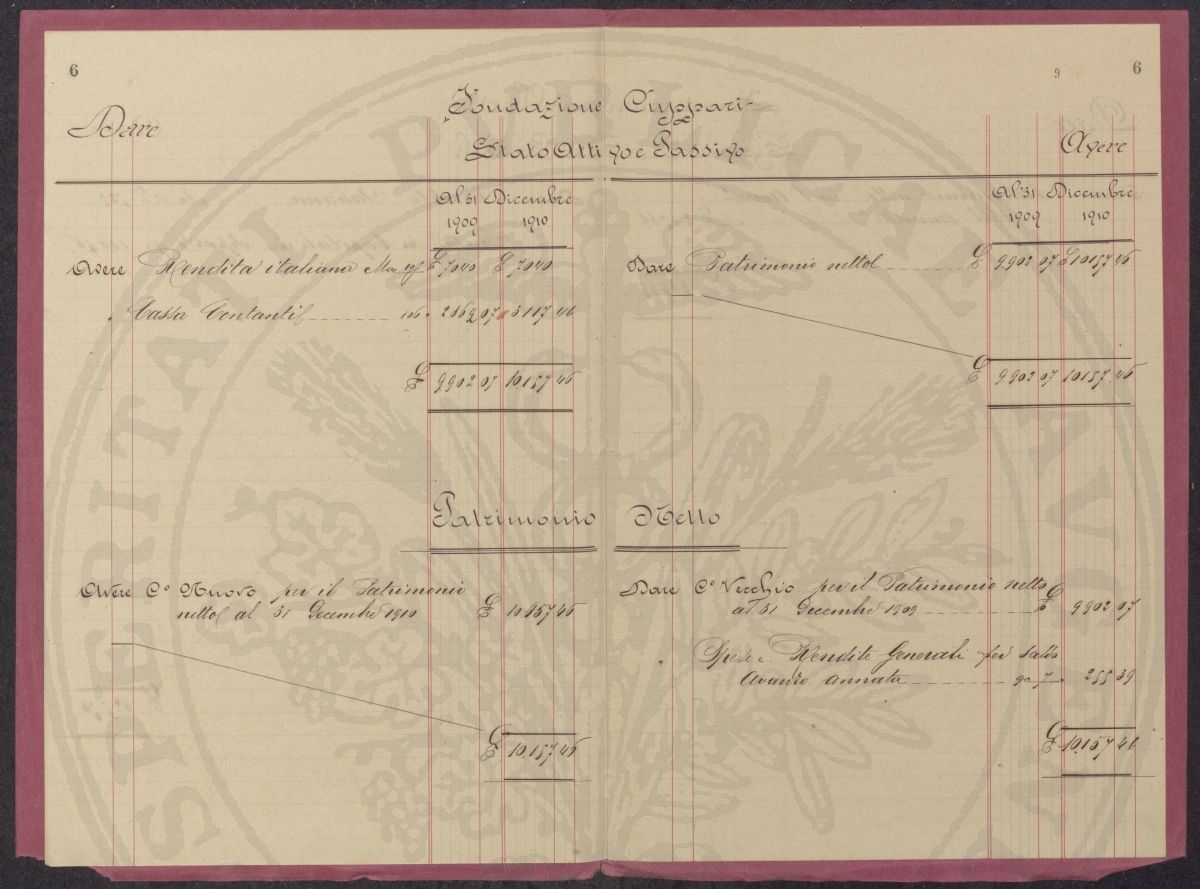 6
9 6
Fondazione Cuppari
Dare
Stato Attivo e Passivo
Avere
Al 31 Dicembre
1909 1910
Al 31 Dicembre
1909 1910
Avere Rendita italiana £ 7040 £ 7040
Dare Patrimonio netto £ 9902 07 £ 10157 46
" Cassa Contanti 106 " 2862 07 " 3117 46
£ 9902 07 10157 46
£ 9902 07 10157 46
Patrimonio Netto
Avere Cº Nuovo per il Patrimonio
netto al 31 Decembre 1910 £ 10157 46
Dare Cº Vecchio per il Patrimonio netto
al 31 Decembre 1909 £ 9902 07
" Spese e Rendite Generali per saldo
Avanzo annata 255 39
£ 10157 46
£ 10.157 46
PROSPERITATI PUBLICAE AUGENDAE